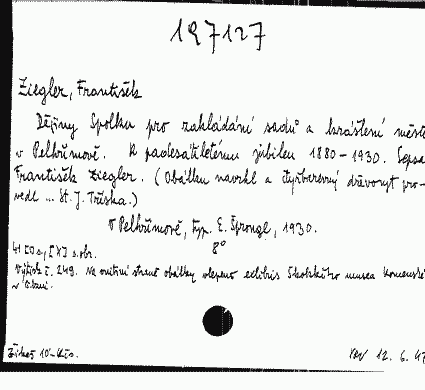 197127
Ziegler, František
Dějiny Spolku pro zakládání sadů a krášlení měste
v Pelhřimově. K padesátiletému jubileu 1880-1930. Sepsa
František Ziegler. (Obálku navrhl a čtyřbarevný dřevoryt pro-
vedl ... St. J. Tříska.)
V Pelhřimově, typ. E. Šprongl, 1930.
8°
41 [3] s., [X] s. obr.
Výtisk č. 249. Na vnitřní straně obálky vlepeno exlibris Školského musea Komenské
v Žižkov 10'-Kčs.
12. 6. 47